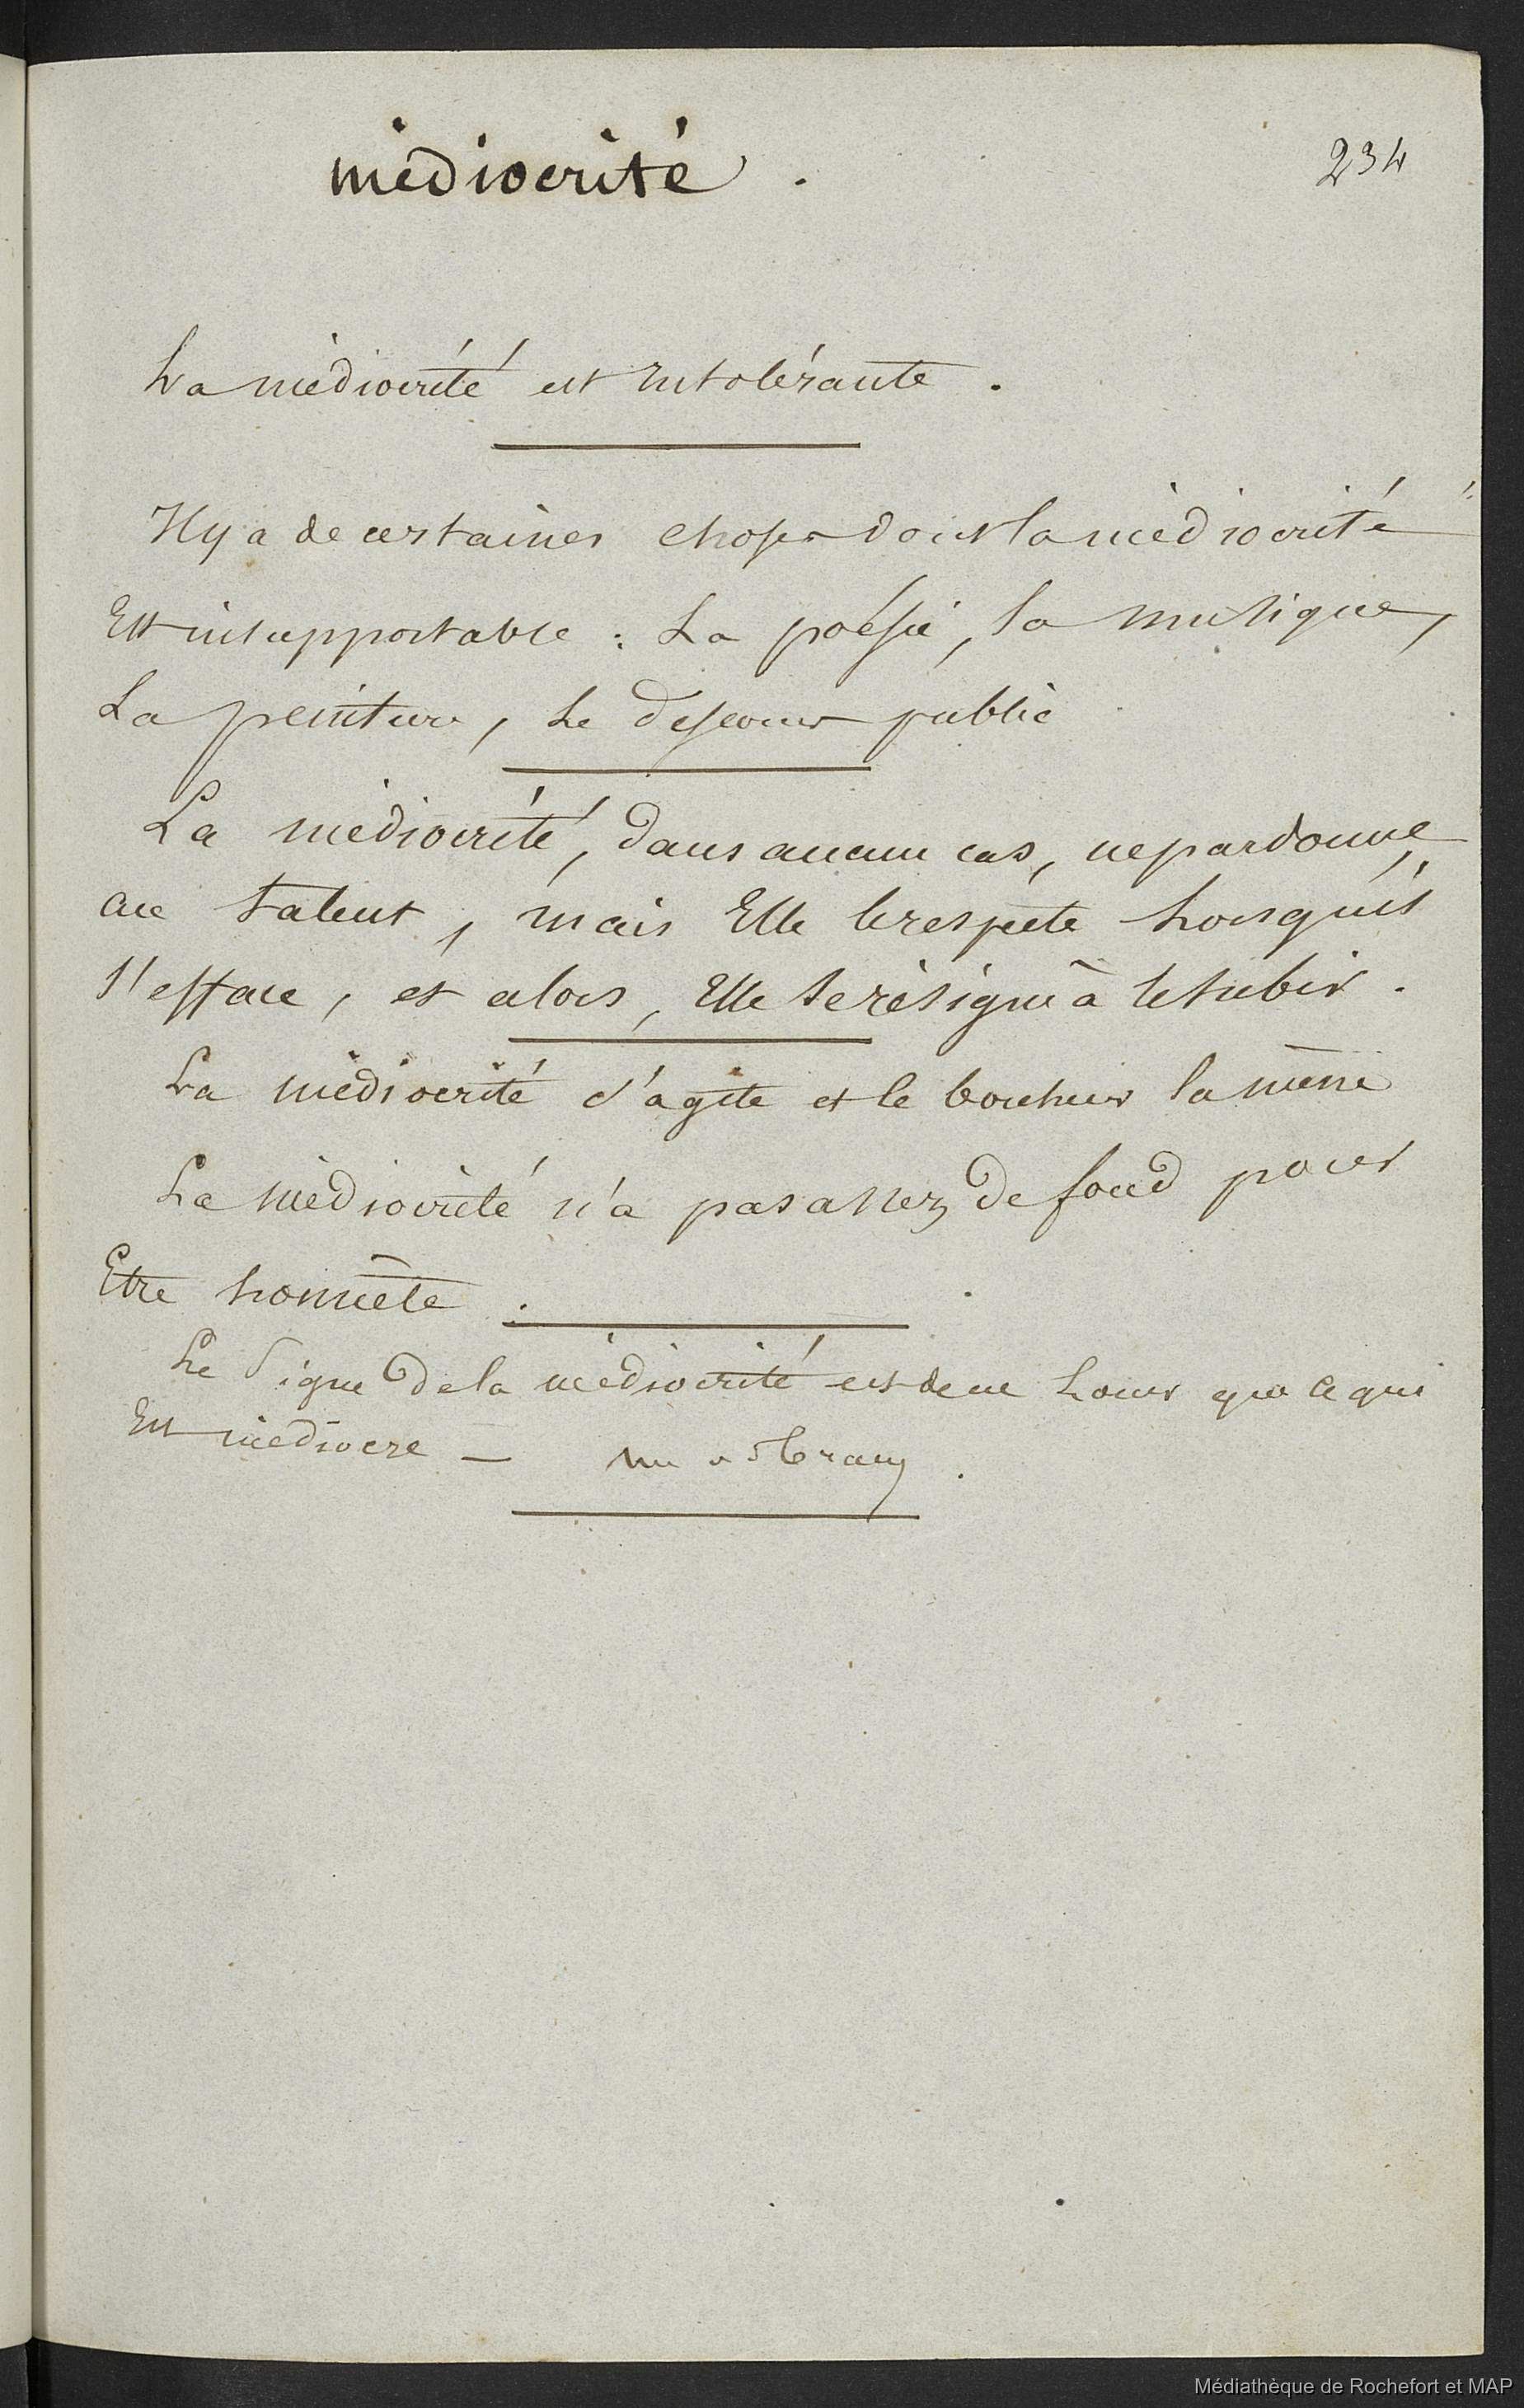 médiocrité .
234
La médiocrité est Intolérante .
Il y a de certaines choses dont la médiocrité
Est insupportable : La poésie, la musique,
La peinture, Le descours public
La médiocrité, dans aucun cas, ne pardonne
au talent, mais Elle le respècte Lorsqu'il
s'efface, et alors, Elle se résigne à le subir .
La médiocrité s'agite et le bonheur la mène
La médiocrité n'a pas assez de fond pour
Etre honnête .
Le Signe de la médiocrité est de ne Louer que ce qui
Est médiocre —
Médiathèque de Rochefort et MAP